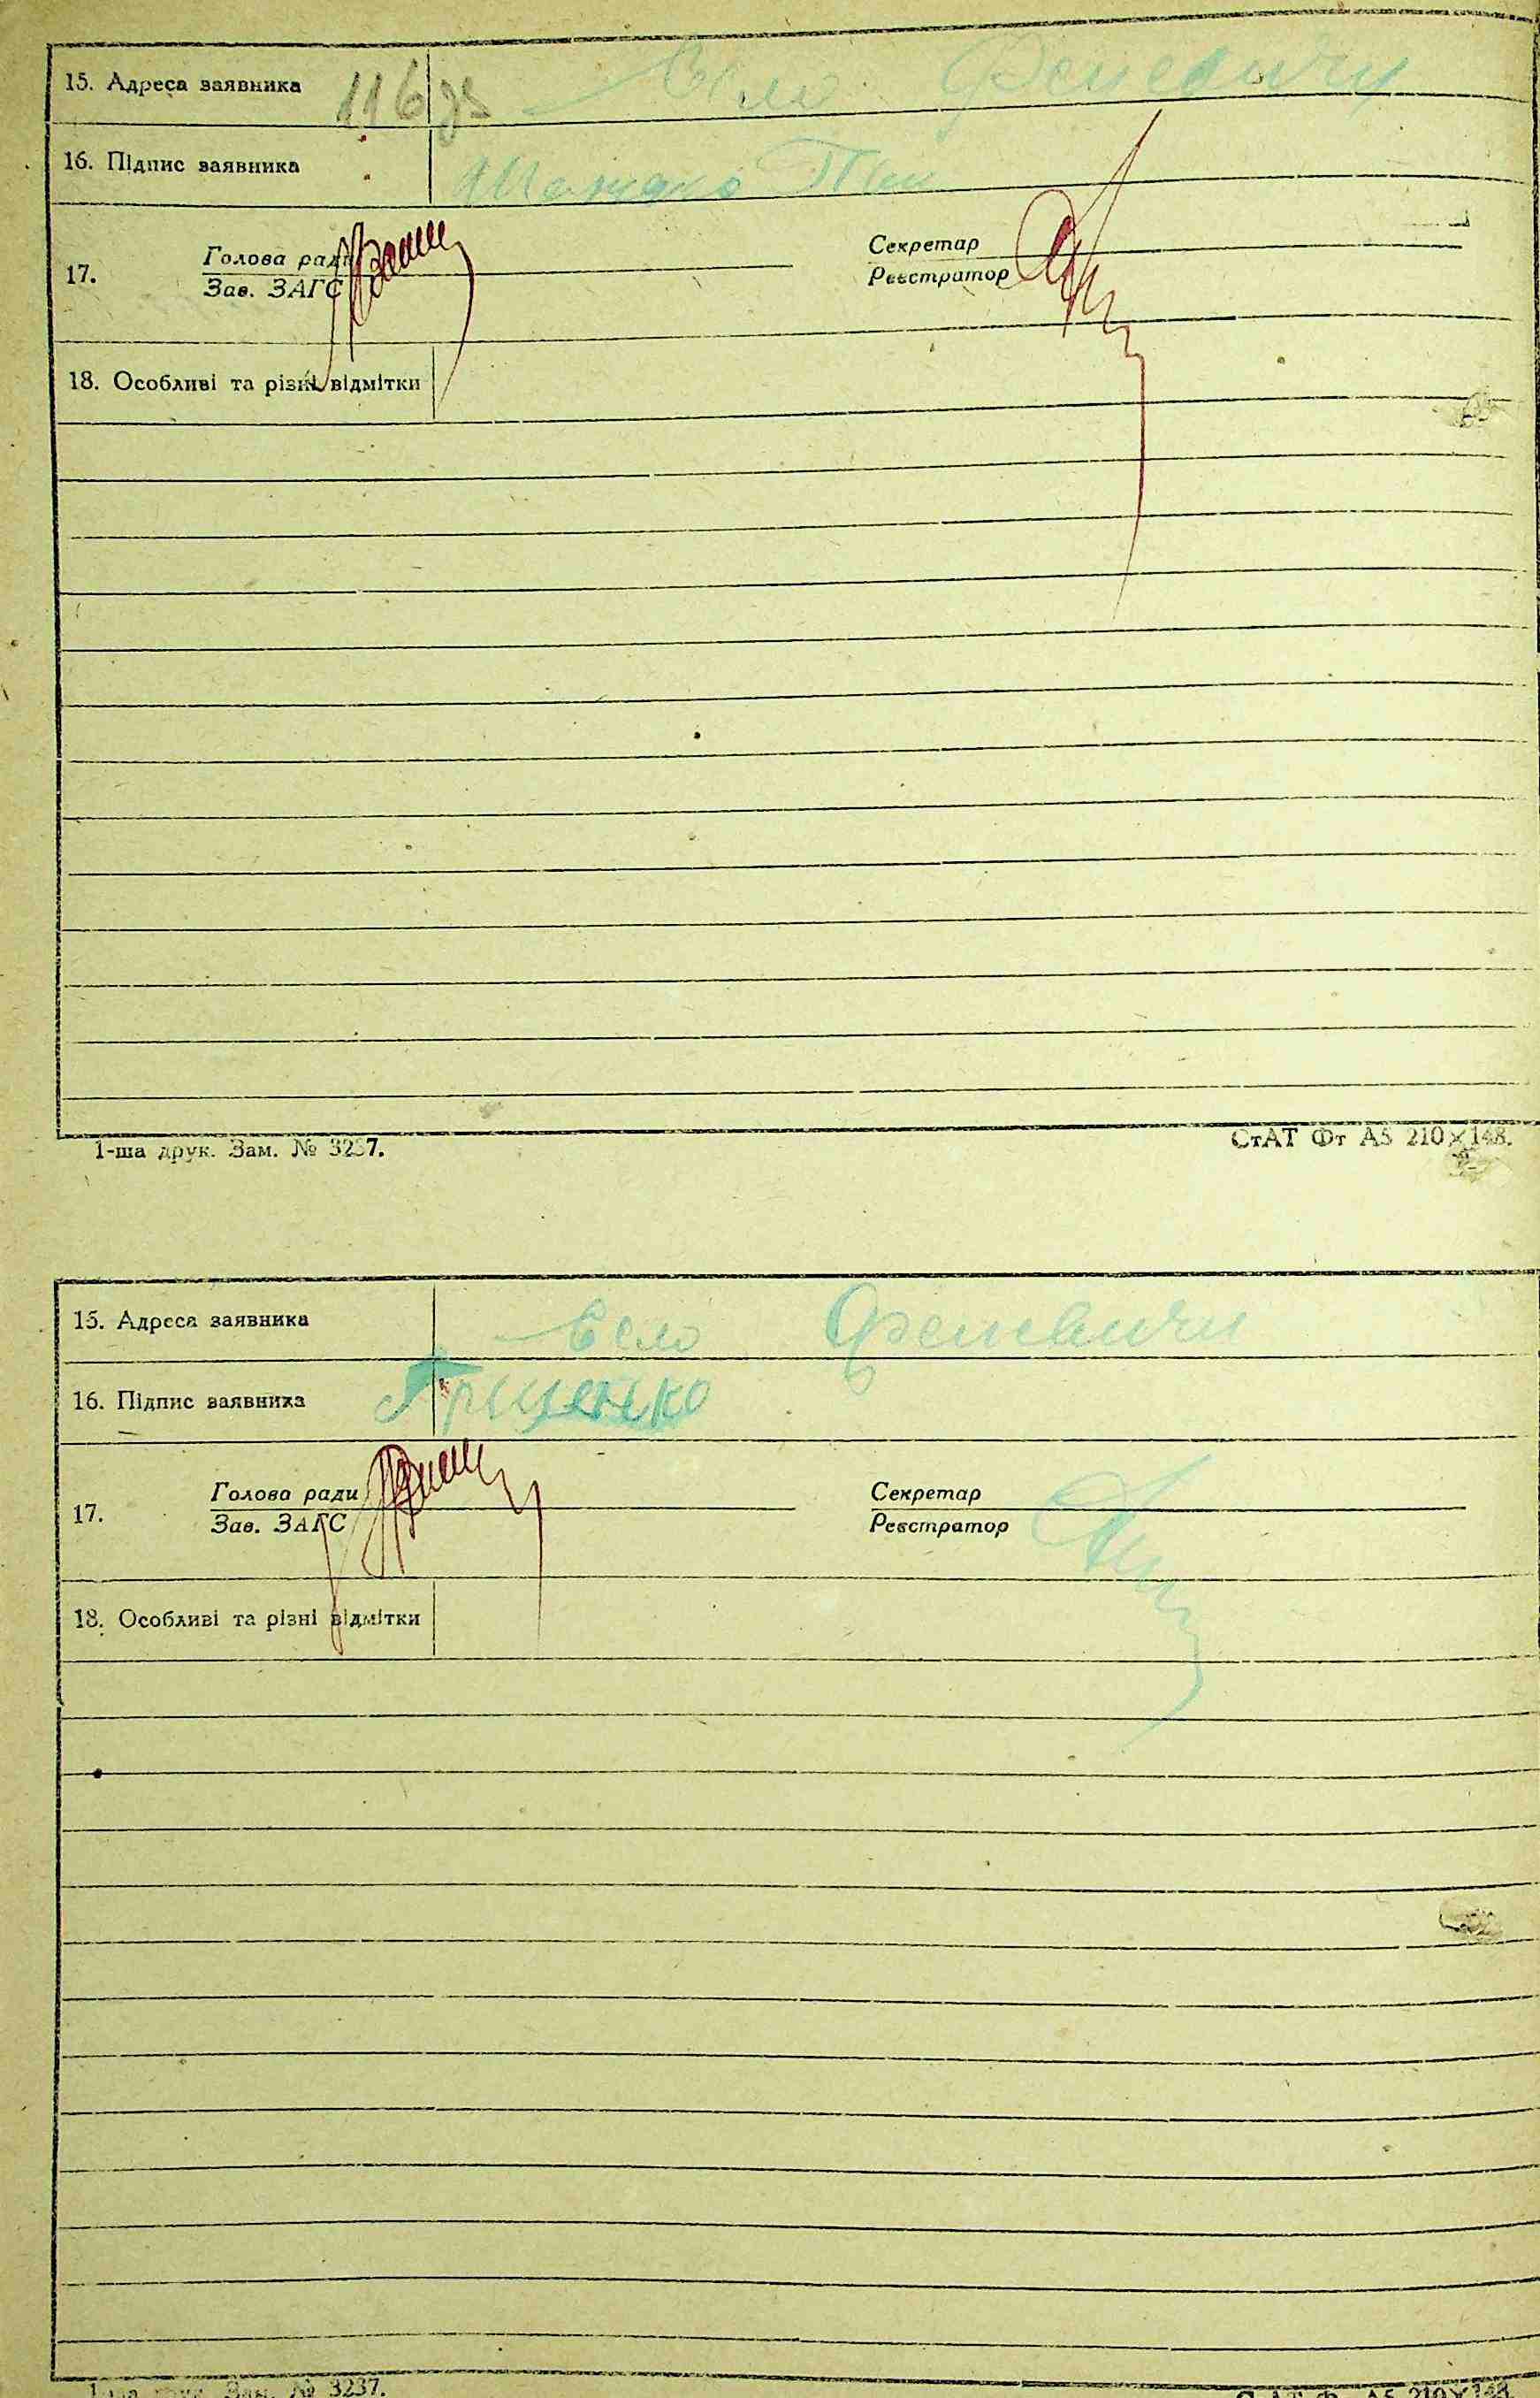 15. Адреса заявника 116зв Село Феневичи
16. Підпис заявника
17. Голова ради Секретар
Зав. ЗАГС Реєстратор
18. Особливі та різні відмітки
1-ша друк. Зам. № 3237. СтАТ Фт А5 210×148.
15. Адреса заявника Село Феневичи
16. Підпис заявника Грищенко
17. Голова ради Секретар
Зав. ЗАГС Реєстратор
18. Особливі та різні відмітки
1-ша друк. Зам. № 3237. СтАТ Фт А5 210×148.